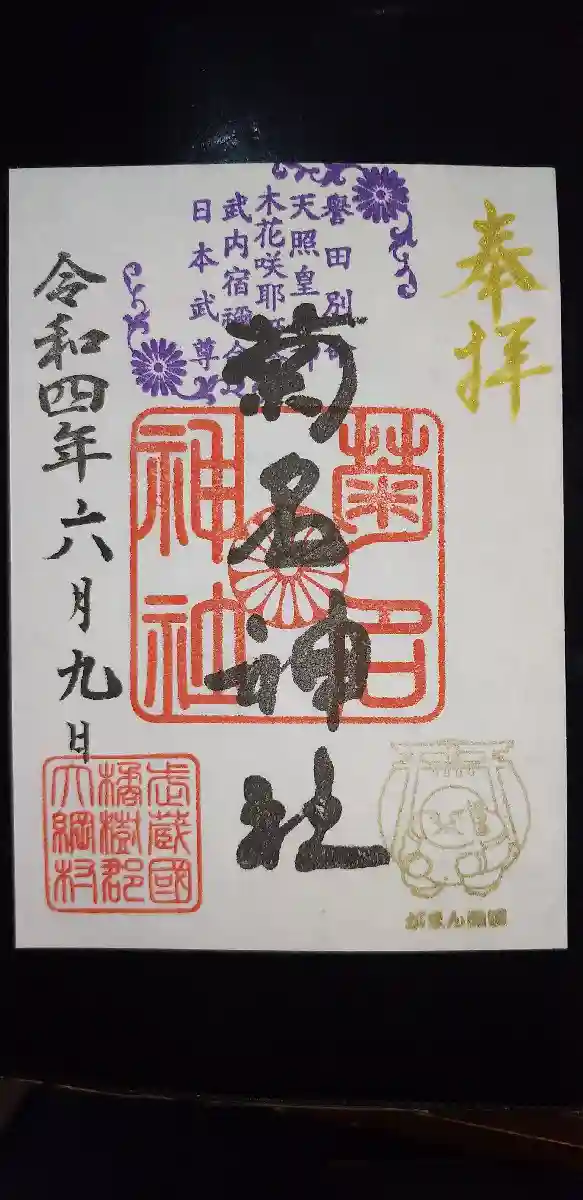 奉拝
譽田別命
天照皇
木花咲耶
武内宿禰命
日本武尊
菊名神社
菊名
神社
令和四年六月九日
武蔵國
橘樹郡
大綱村
がまん